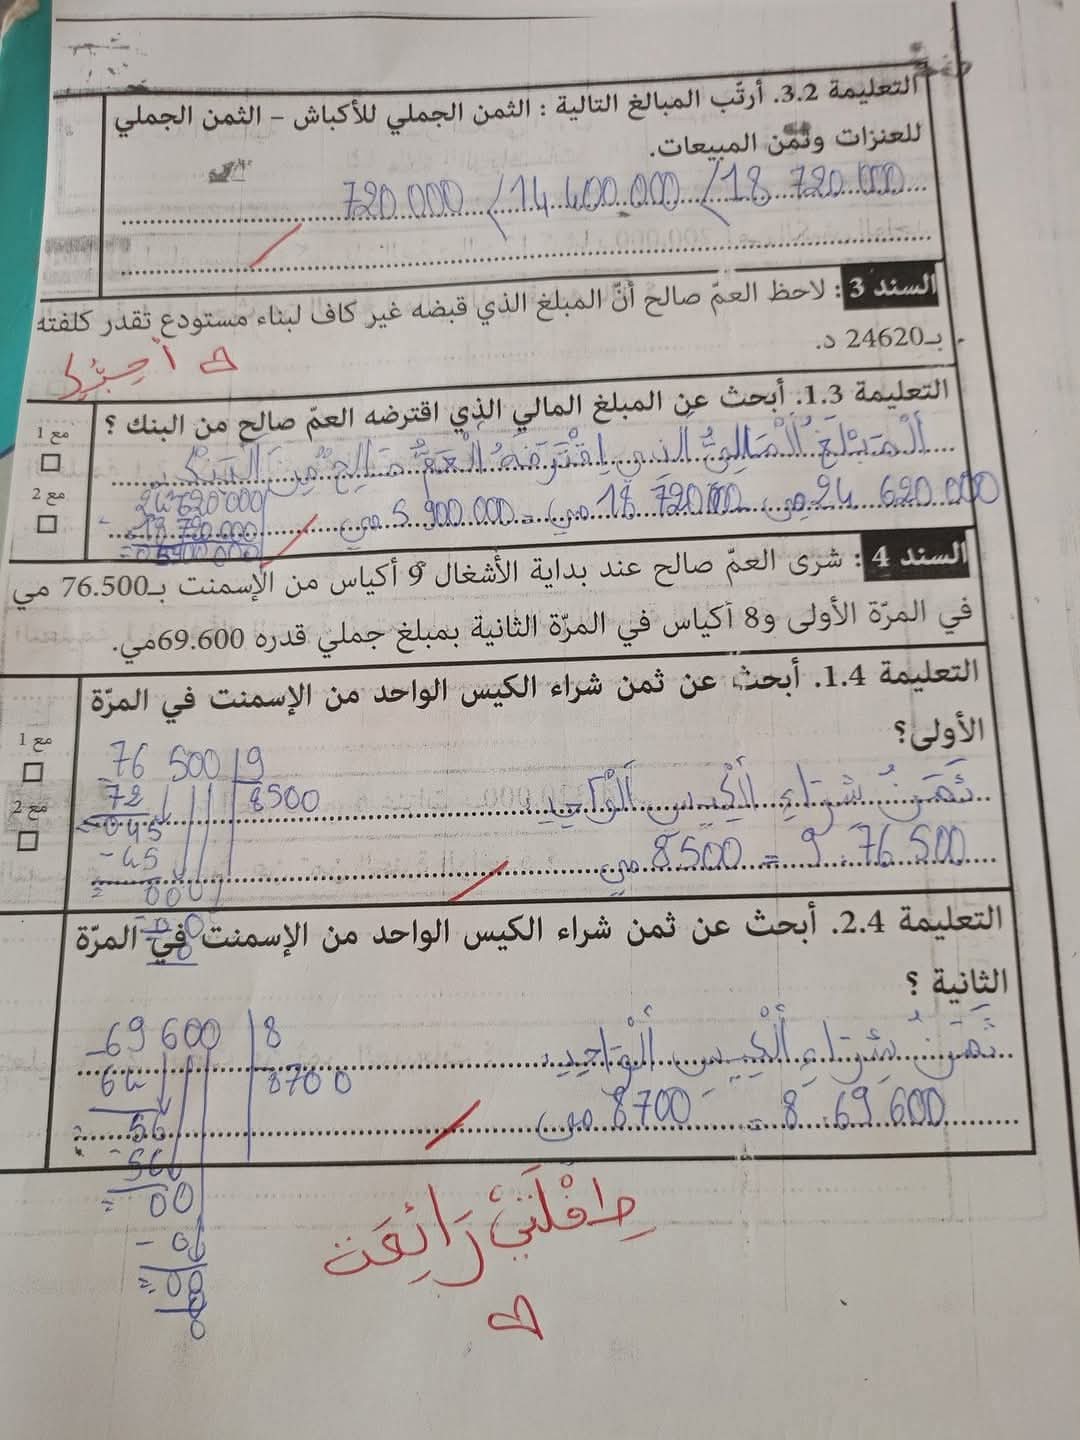 التعليمة 3.2. أرتّب المبالغ التالية : الثمن الجملي للأكباش – الثمن الجملي
للعنزات وثمن المبيعات.
720.000 < 14.400.000 < 18 720.000
السند 3 : لاحظ العمّ صالح أنّ المبلغ الذي قبضه غير كاف لبناء مستودع تقدر كلفته
بـ24620 د.
أحبّك
التعليمة 1.3. أبحث عن المبلغ المالي الذي اقترضه العمّ صالح من البنك ؟
مع 1
مع 2
اَلْمَبْلَغُ اَلْمَالِيُّ الذي اِقْتَرَضَهُ اَلْعَمُّ صَالِح مِنَ اَلْبَنْكِ
24 620 000 مي - 18 720 000 مي = 5 900 000 مي
24 620 000
- 18 720 000
= 05900 000
السند 4 : شرى العمّ صالح عند بداية الأشغال 9 أكياس من الإسمنت بـ76.500 مي
في المرّة الأولى و8 أكياس في المرّة الثانية بمبلغ جملي قدره 69.600مي.
التعليمة 1.4. أبحث عن ثمن شراء الكيس الواحد من الإسمنت في المرّة
الأولى؟
مع 1
مع 2
ثَمَنُ شِرَاءِ اَلْكِيسِ اَلْوَاحِدِ
76 500 : 9 = 8500 مي
76 500 | 9
- 72 | 8500
= 045
- 45
= 000
- 0
0
التعليمة 2.4. أبحث عن ثمن شراء الكيس الواحد من الإسمنت في المرّة
الثانية ؟
ثَمَنُ شِرَاءِ اَلْكِيسِ اَلْوَاحِدِ
69 600 : 8 = 8700 مي
- 69 600 | 8
64 | 8700
= 56
- 56
= 00
- 0
= 00
0
0
طِفْلَتِي رَائِعَة